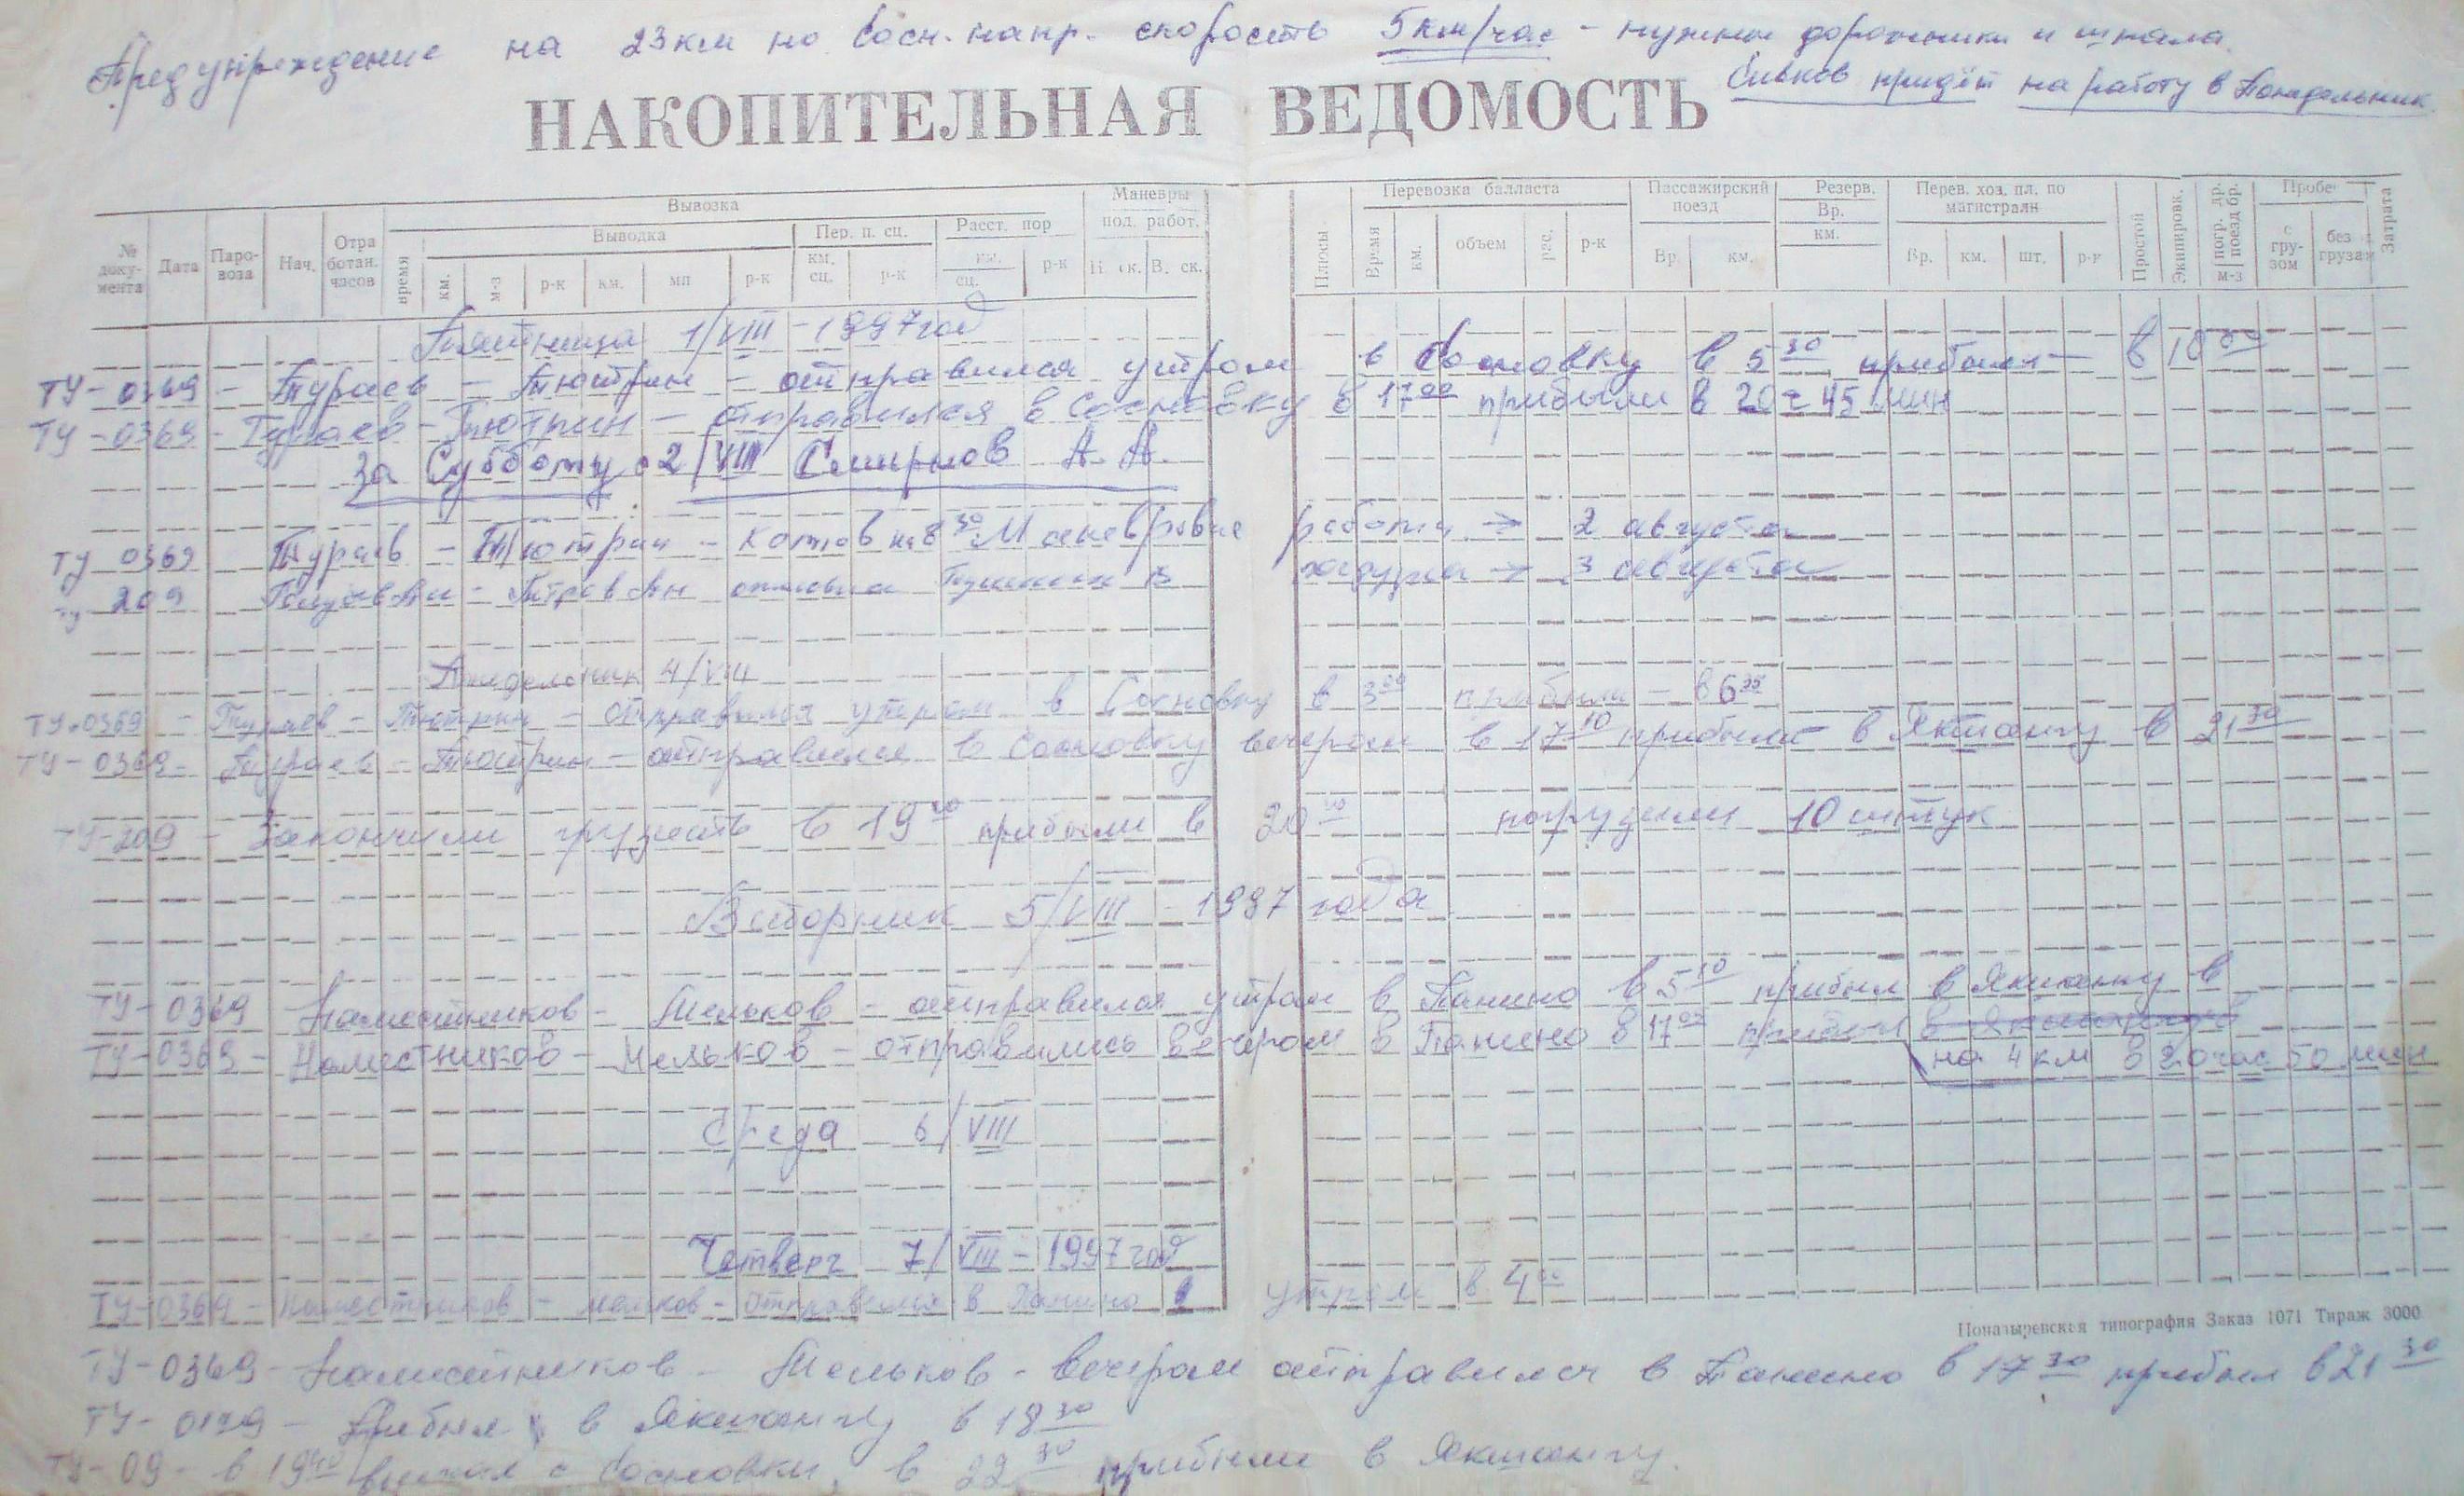 Предупреждение на 23км по Сосн. напр. скорость 5км/час - нужны дорожники и шпала.
Сивков придёт на работу в Понедельник
НАКОПИТЕЛЬНАЯ ВЕДОМОСТЬ
№ доку-мента Дата Паро-воза Нач. Отра ботан. часов
Вывозка
время
Выводка
км. м-з р-к км. мп р-к
Пер. п. сц.
км. сц. р-к
Расст. пор
км. сц. р-к
Маневры под. работ.
Н. ск. В. ск.
Плюсы
Перевозка балласта
Время км. объем рас. р-к
Пассажирский поезд
Вр. км.
Резерв.
Вр.
км.
Перев. хоз. пл. по магистрали
Вр. км. шт. р-к
Простой
Экипировк.
погр. др. поезд бр. м-з
Пробег
с гру-зом без груза
Затрата
Пятница 1/VIII - 1997 год
ТУ - 0369 - Тураев - Тютрин - отправился утром в Сосновку в 5 30 прибыл - в 10 00
ТУ - 0369 - Тураев - Тютрин - отправился в Сосновку в 17 00 прибыли в 20 ч 45 мин
За Субботу 2/VIII Смирнов А. А.
ТУ 0369 Тураев - Тютрин - Котов на 8 30 Маневровые работы → 2 августа
ту 209 погрузка → 3 августа
Понедельник 4/VIII
ТУ-0369 - Тураев - Тютрин - отправился утром в Сосновку в 3 00 прибыли - в 6 35
ТУ - 0369 - Тураев - Тютрин - отправился в Сосновку вечером в 17 10 прибыли в Якшангу в 21 30
ТУ-209 - Закончили грузить в 19 00 прибыли в 20 00 погрузили 10 штук
Вторник 5/VIII - 1997 года
ТУ - 0369 - Наместников - Мельков - отправился утром в Панино в 5 10 прибыл в Якшангу в
ТУ - 0369 - Наместников - Мельков - отправились вечером в Панино в 17 00 прибыл в Якшангу в
на 4 км в 20 час 50 мин
Среда 6/VIII
Четверг 7/VIII - 1997 год
ТУ-0369 - Наместников - Мельков - отправился в Панино утром в 4 00
Поназыревская типография Заказ 1071 Тираж 3000
ТУ - 0369 - Наместников - Мельков - вечером отправился в Панино в 17 30 прибыл в 21 30
ТУ - 0179 - Прибыл в Якшангу в 18 30
ТУ - 09 - в 19 40 выехал с Сосновки, в 22 30 прибыли в Якшангу.